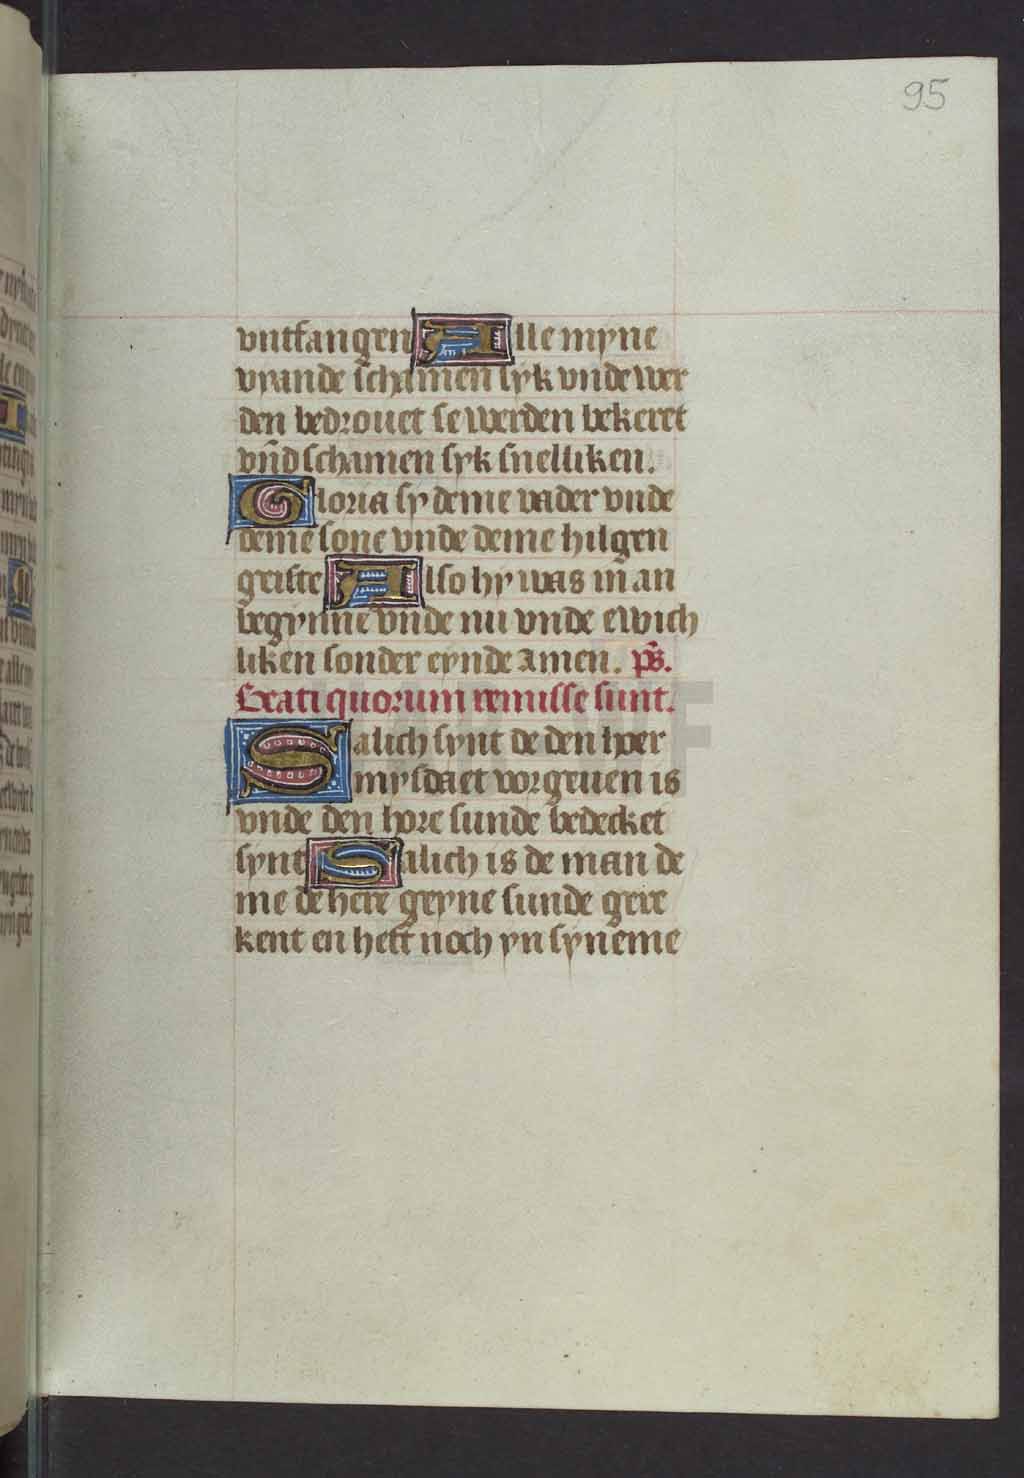 95
vntfangen Alle myne
vyande schamen syk vnde wer
den bedrouet se werden bekeret
vn̄d schamen syk snelliken.
Gloria sy deme vader vnde
deme sone vnde deme hilgen
geiste Also hy was in̄ an
begynne vnde nu vnde ewich
liken sonder eynde amen. ps̄.
Beati quorum remisse sunt.
Salich synt de den hoer
mysdaet vorgeuen is
vnde den hore sunde bedecket
synt Salich is de man de
me de here geyne sunde gere
kent en heft noch yn syneme